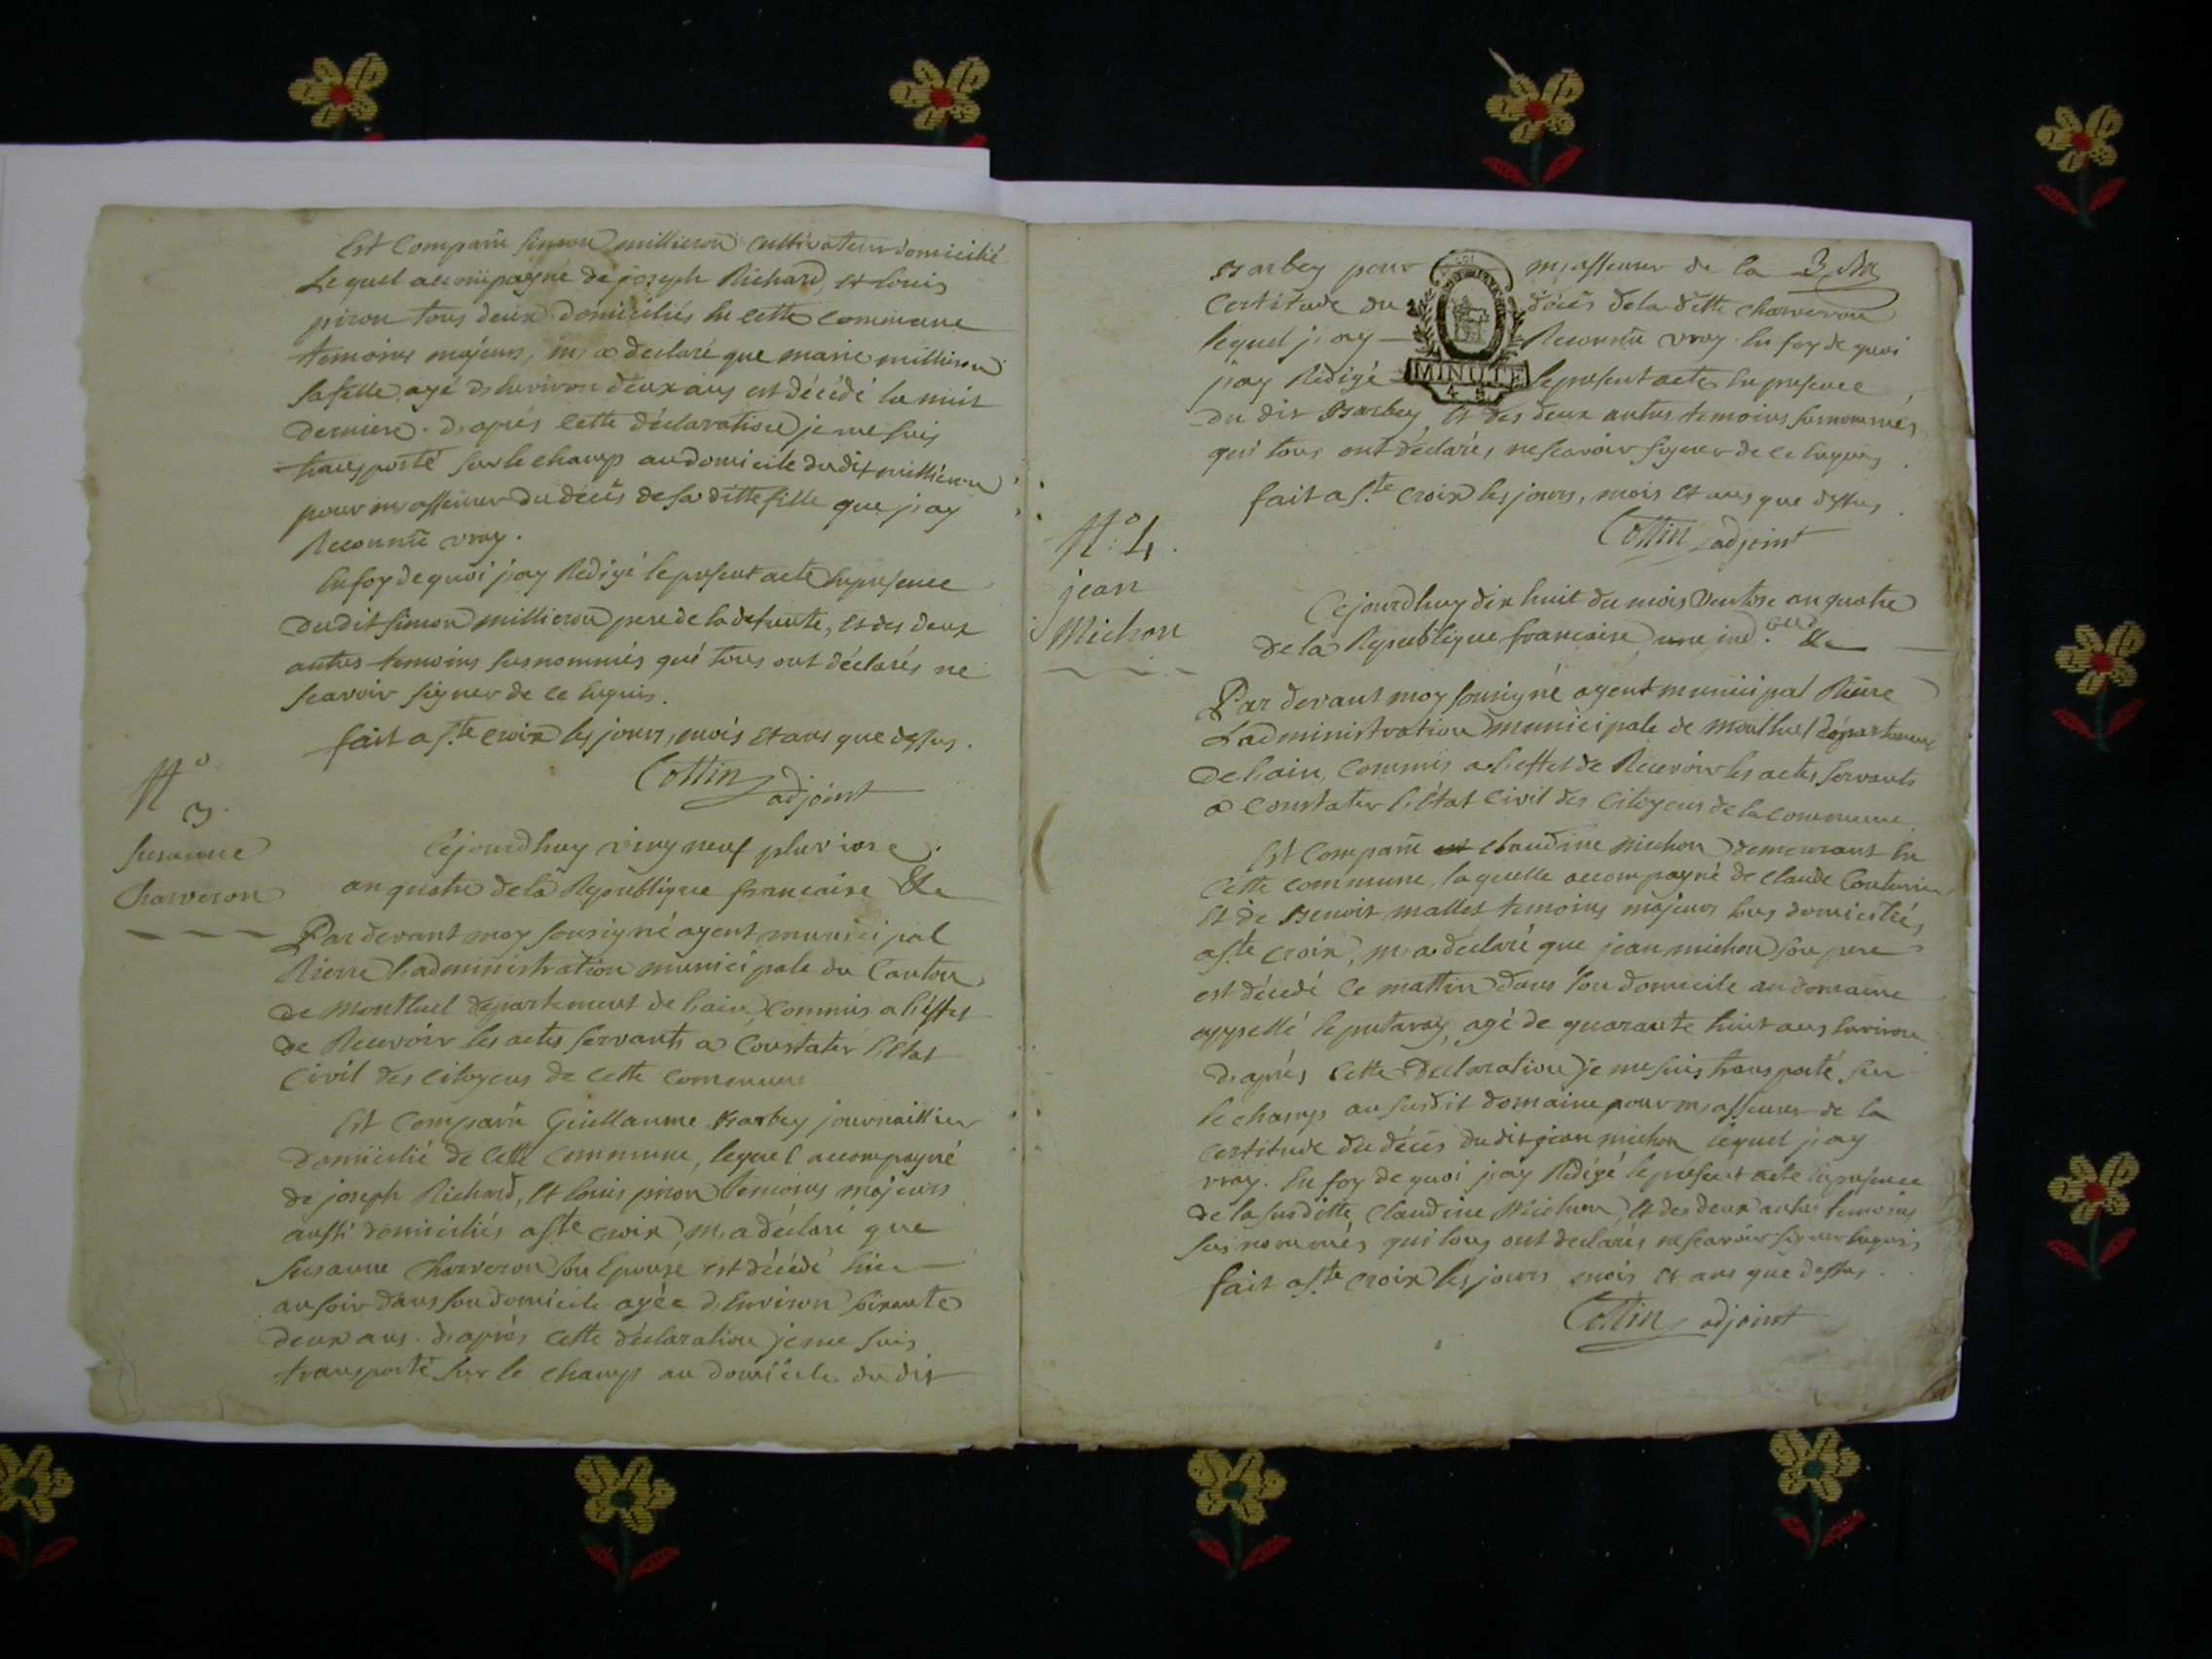 Est Comparu simon millieron Cultivateur domicilié
Lequel accompagné de joseph Richard, et louis
piron tous deux domiciliés en cette commune
temoins majeurs, m'a declaré que marie millieron
sa fille agé d'environ deux ans est décédé la nuit
derniere. d'après cette déclaration je me suis
transporté sur le champ au domicile du dit millieron
pour m'asseurer du décès de sa ditte fille que j'ay
Reconnu vray.
En foy de quoi j'ay Redigé le present acte en presence
du dit simon millieron pere de la defunte, et des deux
autres temoins susnommés qui tous ont déclarés ne
scavoir signer de ce enquis.
fait a s.te croix les jours, mois et ans que dessus.
Cottin adjoint
N.o 3.
susanne
Charveron
Cejourdhuy vingt neuf pluviose
an quatre de la Republique francaise &c
Par devant moy sousigné agent municipal
Rierre l'administration municipale du Canton
de Montluel departement de l'ain commis a l'effet
de Recevoir les actes servants a Constater l'Etat
Civil des citoyens de cette commune
Est Comparu Guillaume Barbey journaillier
domicilié de cette commune, lequel accompagné
de joseph Richard, et louis piron temoins majeurs
aussi domiciliés a ste croix, m'a déclaré que
susanne Charveron son Epouse est décédé hier
au soir dans son domicile agée d'Environ soixante
deux ans. d'après cette déclaration je me suis
transporté sur le champ au domicile du dit
Barbey pour m'asseurer de la 3
Certitude du décès de la ditte charveron
lequel j'ay Reconnu vray. En foy de quoi
j'ay Redigé le present acte en presence
MINUTE
du dit Barbey, et des deux autres temoins susnommés
qui tous ont declarés ne scavoir signer de ce enquis
fait a s.te Croix les jours, mois et ans que dessus.
Cottin adjoint
N.o 4.
jean
Michon
Cejourdhuy dix huit du mois Ventose an quatre
de la Republique francaise une ind. &c
Par devant moy sousigné agent municipal Rierre
L'administration municipale de montluel département
de l'ain, Commis a l'effet de Recevoir les actes servants
a Constater l'Etat Civil des Citoyens de la commune
Est Comparu claudine michon demeurant en
Cette commune, laquelle accompagné de claude Couturier
Et de Benoit mallet temoins majeurs tous domiciliés
a ste croix, m'a déclaré que jean michon son pere
est décedé ce mattin dans son domicile au domaine
appellé le putaray, agé de quarante huit ans Environ
d'après cette Declaration je me suis transporté sur
le champ au susdit domaine pour m'asseurer de la
certitude du décès du dit jean michon lequel j'ay
vray. En foy de quoi j'ay Redigé le present acte en presence
de la susditte Claudine Michon, et des deux autres temoins
susnommés qui tous ont declarés ne scavoir signer enquis
fait a ste croix les jours mois et ans que dessus.
Cottin adjoint